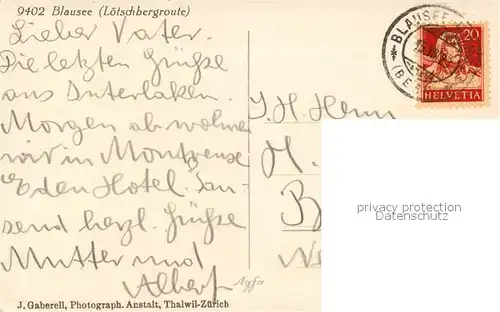 9402 Blausee (Lötschbergroute)
Lieber Vater.
Die letzten Grüße
aus Interlaken.
Morgen ab wohnen
wir in Montreux
Eden Hotel. Tau-
send herzl. Grüße
Mutter und
Albert
J. Gaberell, Photograph. Anstalt, Thalwil-Zürich
BLAUSEE
(BE
20
HELVETIA
S. H. Herrn
H.
B
privacy protection
Datenschutz
Agfa